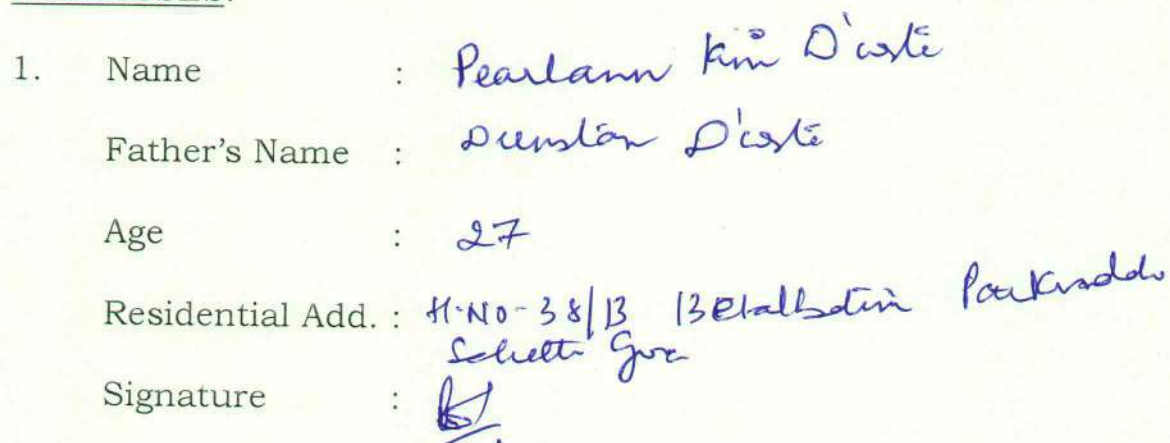 1. Name : Pearlann Kim D'costa
Father's Name : Dunstan D'costa
Age : 27
Residential Add. : H.No-38/B Betalbatim
Goa
Signature :